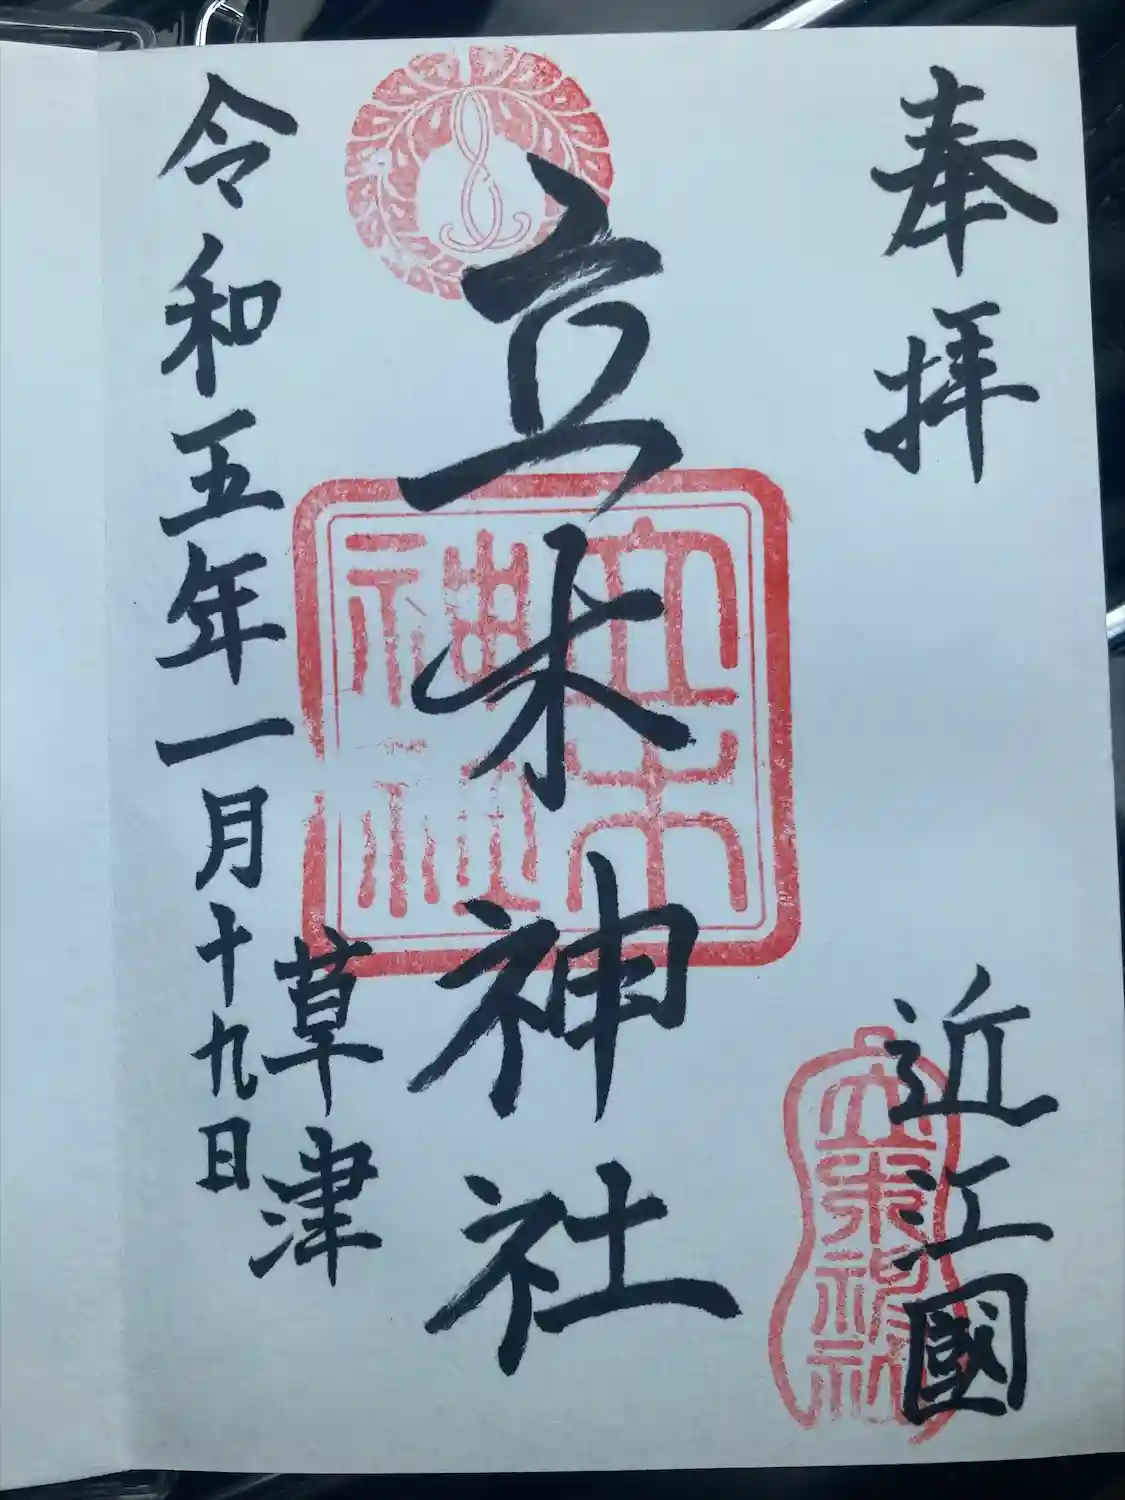 奉拝
近江國
立木神社
立木神社
立木神社
草津
令和五年一月十九日